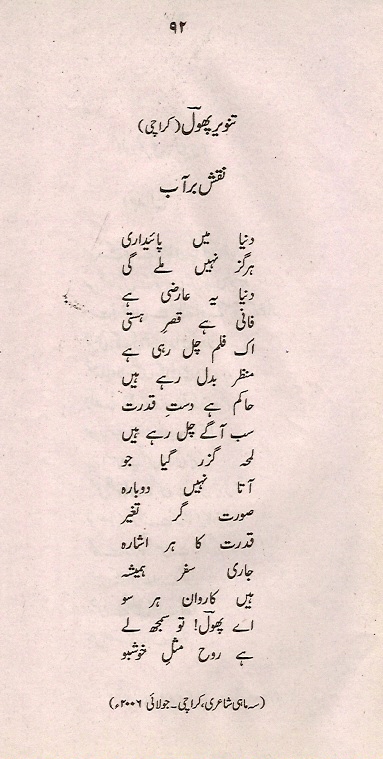 ۹۲
تنویر پھولؔ (کراچی)
نقش بر آب
دنیا میں پائیداری
ہرگز نہیں ملے گی
دنیا یہ عارضی ہے
فانی ہے قصرِ ہستی
اک فلم چل رہی ہے
منظر بدل رہے ہیں
حاکم ہے دستِ قدرت
سب آگے چل رہے ہیں
لمحہ گزر گیا جو
آتا نہیں دوبارہ
صورت گر تغیر
قدرت کا ہر اشارہ
جاری سفر ہمیشہ
ہیں کارواں ہر سو
اے پھولؔ! تو سمجھ لے
ہے روح مثلِ خوشبو
(سہ ماہی شاعری، کراچی۔ جولائی ۲۰۰۶ء)